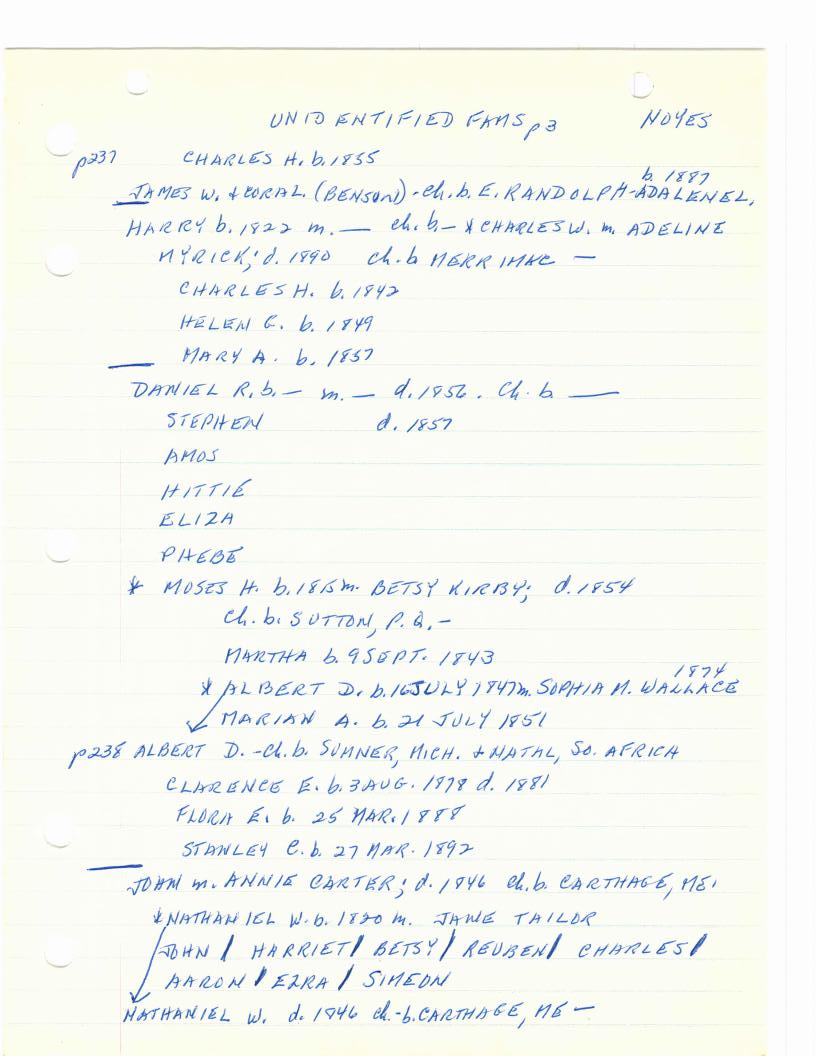 UNIDENTIFIED FAMS p3 NOYES
p237 CHARLES H. b. 1855
b. 1887
JAMES W. & CORA L. (BENSON) - ch. b. E. RANDOLPH - ADALENE L.
HARRY b. 1822 m. — ch. b — * CHARLES W. m. ADELINE
MYRICK; d. 1890 ch. b MERRIMAC —
CHARLES H. b. 1842
HELEN G. b. 1849
MARY A. b. 1857
DANIEL R. b. — m. — d. 1856. Ch. b. —
STEPHEN d. 1857
AMOS
HITTIE
ELIZA
PHEBE
* MOSES H. b. 1815 m. BETSY KIRBY; d. 1854
Ch. b. SUTTON, P.Q. —
MARTHA b. 9 SEPT. 1843
1874
* ALBERT D. b. 16 JULY 1847 m. SOPHIA M. WALLACE
MARIAN A. b. 21 JULY 1851
p238 ALBERT D. - Ch. b. SUMNER, MICH. & NATAL, SO. AFRICA
CLARENCE E. b. 3 AUG. 1878 d. 1881
FLORA E. b. 25 MAR. 1888
STANLEY C. b. 27 MAR. 1892
JOHN m. ANNIE CARTER; d. 1846 ch. b. CARTHAGE, ME.
* NATHANIEL W. b. 1820 m. JANE TAILOR
JOHN / HARRIET / BETSY / REUBEN / CHARLES /
AARON / EZRA / SIMEON
NATHANIEL W. d. 1846 ch. - b. CARTHAGE, ME —